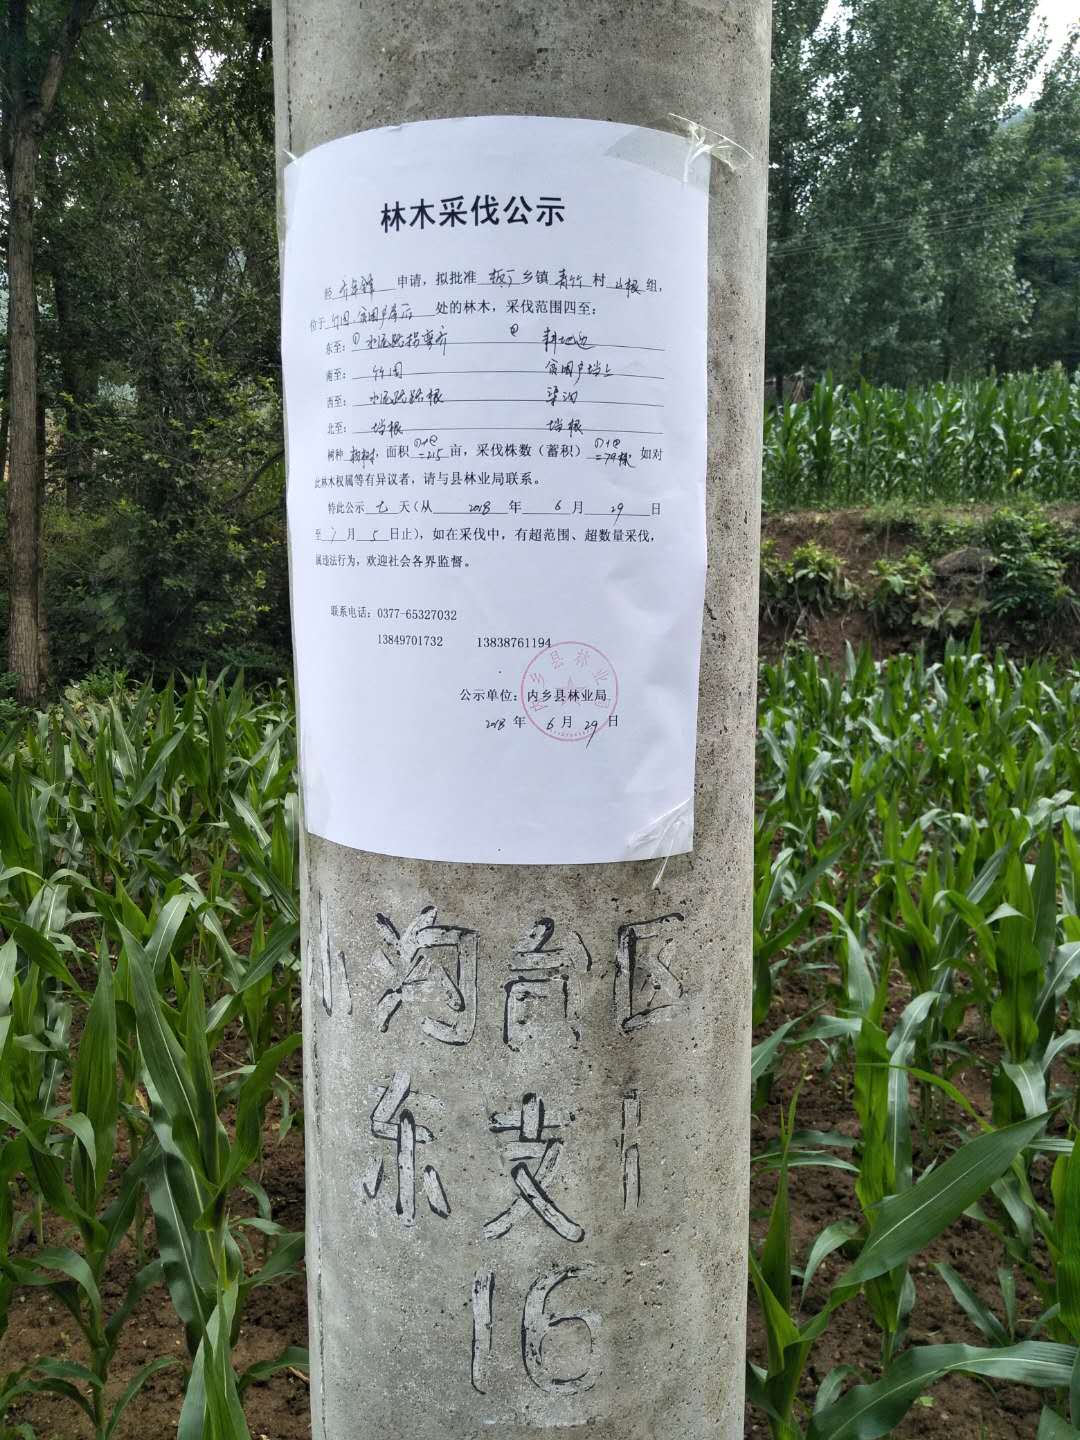 林木采伐公示
经 申请，拟批准 板厂 乡镇 青竹 村 山根 组，
位于 竹园 贫困户房后 处的林木，采伐范围四至：
东至：① 水泥路拐弯齐 ② 耕地边
南至： 竹园 贫困户垱上
西至： 水泥路路根 梁沟
北至： 垱根 垱根
树种 面积 ①+② 亩，采伐株数（蓄积）①+② =79株 如对
此林木权属等有异议者，请与县林业局联系。
特此公示 七 天(从 2018 年 6 月 29 日
至 7 月 5 日止)，如在采伐中，有超范围、超数量采伐，
属违法行为，欢迎社会各界监督。
联系电话：0377-65327032
13849701732 13838761194
公示单位：内乡县林业局
2018 年 6 月 29 日
小沟台区
东支1
16